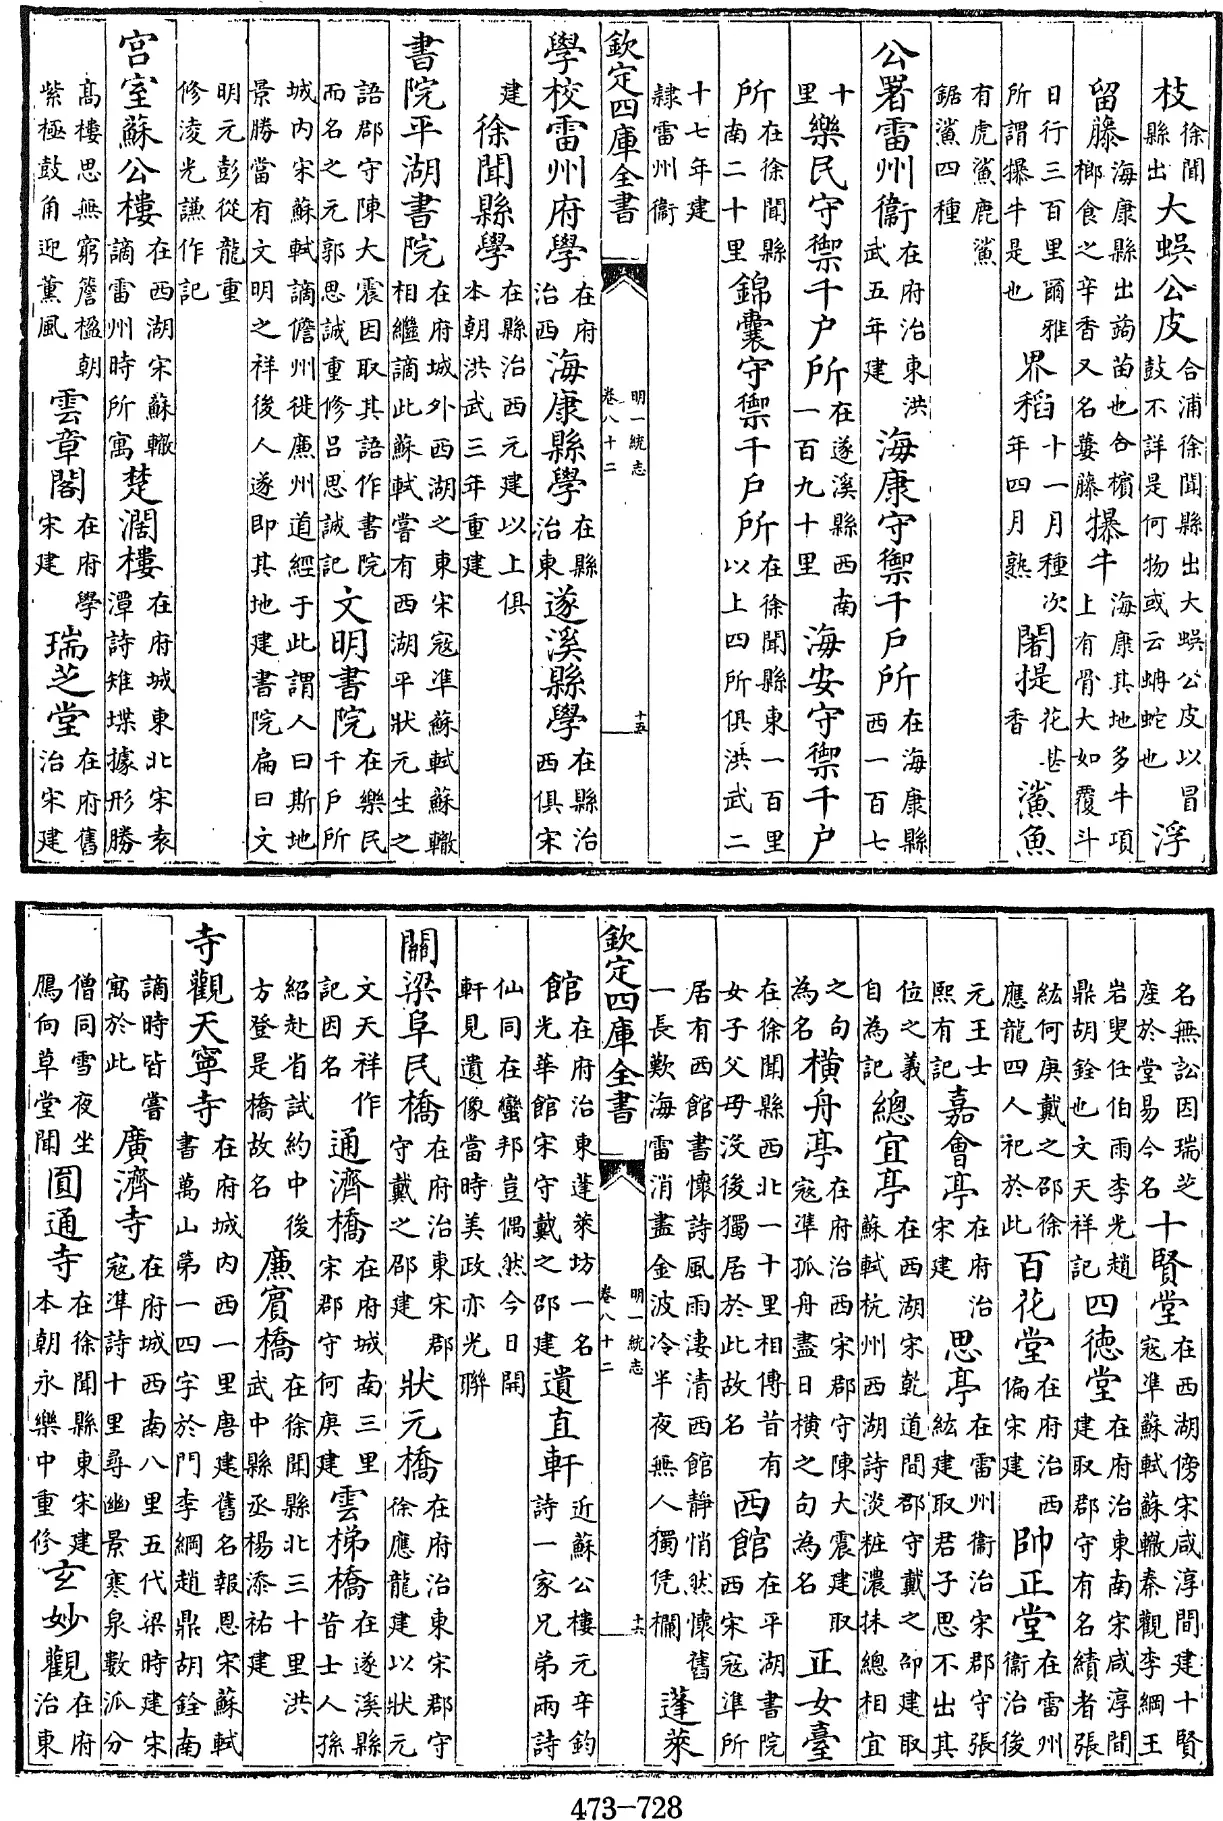 枝徐聞縣出大蜈公皮合浦徐聞縣出大蜈公皮以冒鼓不詳是何物或云蚺蛇也浮
留藤海康縣出蒟苗也合檳榔食之辛香又名蔞藤犦牛海康其地多牛項上有骨大如覆斗
日行三百里爾雅所謂犦牛是也界稻十一月種次年四月熟闍提花甚香鯊魚
有虎鯊鹿鯊鋸鯊四種
公署雷州衞在府治東洪武五年建海康守禦千戶所在海康縣西一百七
十里樂民守禦千户所在遂溪縣西南一百九十里海安守禦千户
所在徐聞縣南二十里錦囊守禦千戶所在徐聞縣東一百里以上四所俱洪武二
十七年建隷雷州衞
欽定四庫全書 明一統志 卷八十二 十五
學校雷州府學在府治西海康縣學在縣治東遂溪縣學在縣治西俱宋
建徐聞縣學在縣治西元建以上俱本朝洪武三年重建
書院平湖書院在府城外西湖之東宋寇凖蘇軾蘇轍相繼謫此蘇軾嘗有西湖平狀元生之
語郡守陳大震因取其語作書院而名之元郭思誠重修吕思誠記文明書院在樂民千戶所
城内宋蘇軾謫儋州徙亷州道經于此謂人曰斯地景勝當有文明之祥後人遂即其地建書院扁曰文
明元彭從龍重修淩光謙作記
宫室蘇公樓在西湖宋蘇轍謫雷州時所寓楚濶樓在府城東北宋袁潭詩雉堞據形勝
髙樓思無窮簷楹朝紫極鼓角迎薫風雲章閣在府學宋建瑞芝堂在府舊治宋建
名無訟因瑞芝産於堂易今名十賢堂在西湖傍宋咸淳間建十賢寇凖蘇軾蘇轍秦觀李綱王
岩叟任伯雨李光趙鼎胡銓也文天祥記四德堂在府治東南宋咸淳間建取郡守有名績者張
紘何庚戴之邵徐應龍四人祀於此百花堂在府治西偏宋建帥正堂在雷州衞治後
元王士熙有記嘉會亭在府治宋建思亭在雷州衞治宋郡守張紘建取君子思不出其
位之義自為記總宜亭在西湖宋乾道間郡守戴之卲建取蘇軾杭州西湖詩淡粧濃抹總相宜
之句為名横舟亭在府治西宋郡守陳大震建取寇凖孤舟盡日横之句為名正女臺
在徐聞縣西北一十里相傳昔有女子父母沒後獨居於此故名西館在平湖書院西宋寇凖所
居有西館書懷詩風雨淒清西館靜悄然懷舊一長歎海雷消盡金波冷半夜無人獨凭欄蓬萊
欽定四庫全書 明一統志 卷八十二 十六
館在府治東蓬萊坊一名光華館宋守戴之邵建遺直軒近蘇公樓元辛鈞詩一家兄弟兩詩
仙同在蠻邦豈偶然今日開軒見遺像當時美政亦光聨
關梁阜民橋在府治東宋郡守戴之邵建狀元橋在府治東宋郡守徐應龍建以狀元
文天祥作記因名通濟橋在府城南三里宋郡守何庚建雲梯橋在遂溪縣昔士人孫
紹赴省試約中後方登是橋故名亷賓橋在徐聞縣北三十里洪武中縣丞楊添祐建
寺觀天寧寺在府城内西一里唐建舊名報恩宋蘇軾書萬山第一四字於門李綱趙鼎胡銓南
謫時皆嘗寓於此廣濟寺在府城西南八里五代梁時建宋寇凖詩十里尋幽景寒泉數派分
僧同雪夜坐鴈向草堂聞圓通寺在徐聞縣東宋建本朝永樂中重修玄妙觀在府治東
473-728